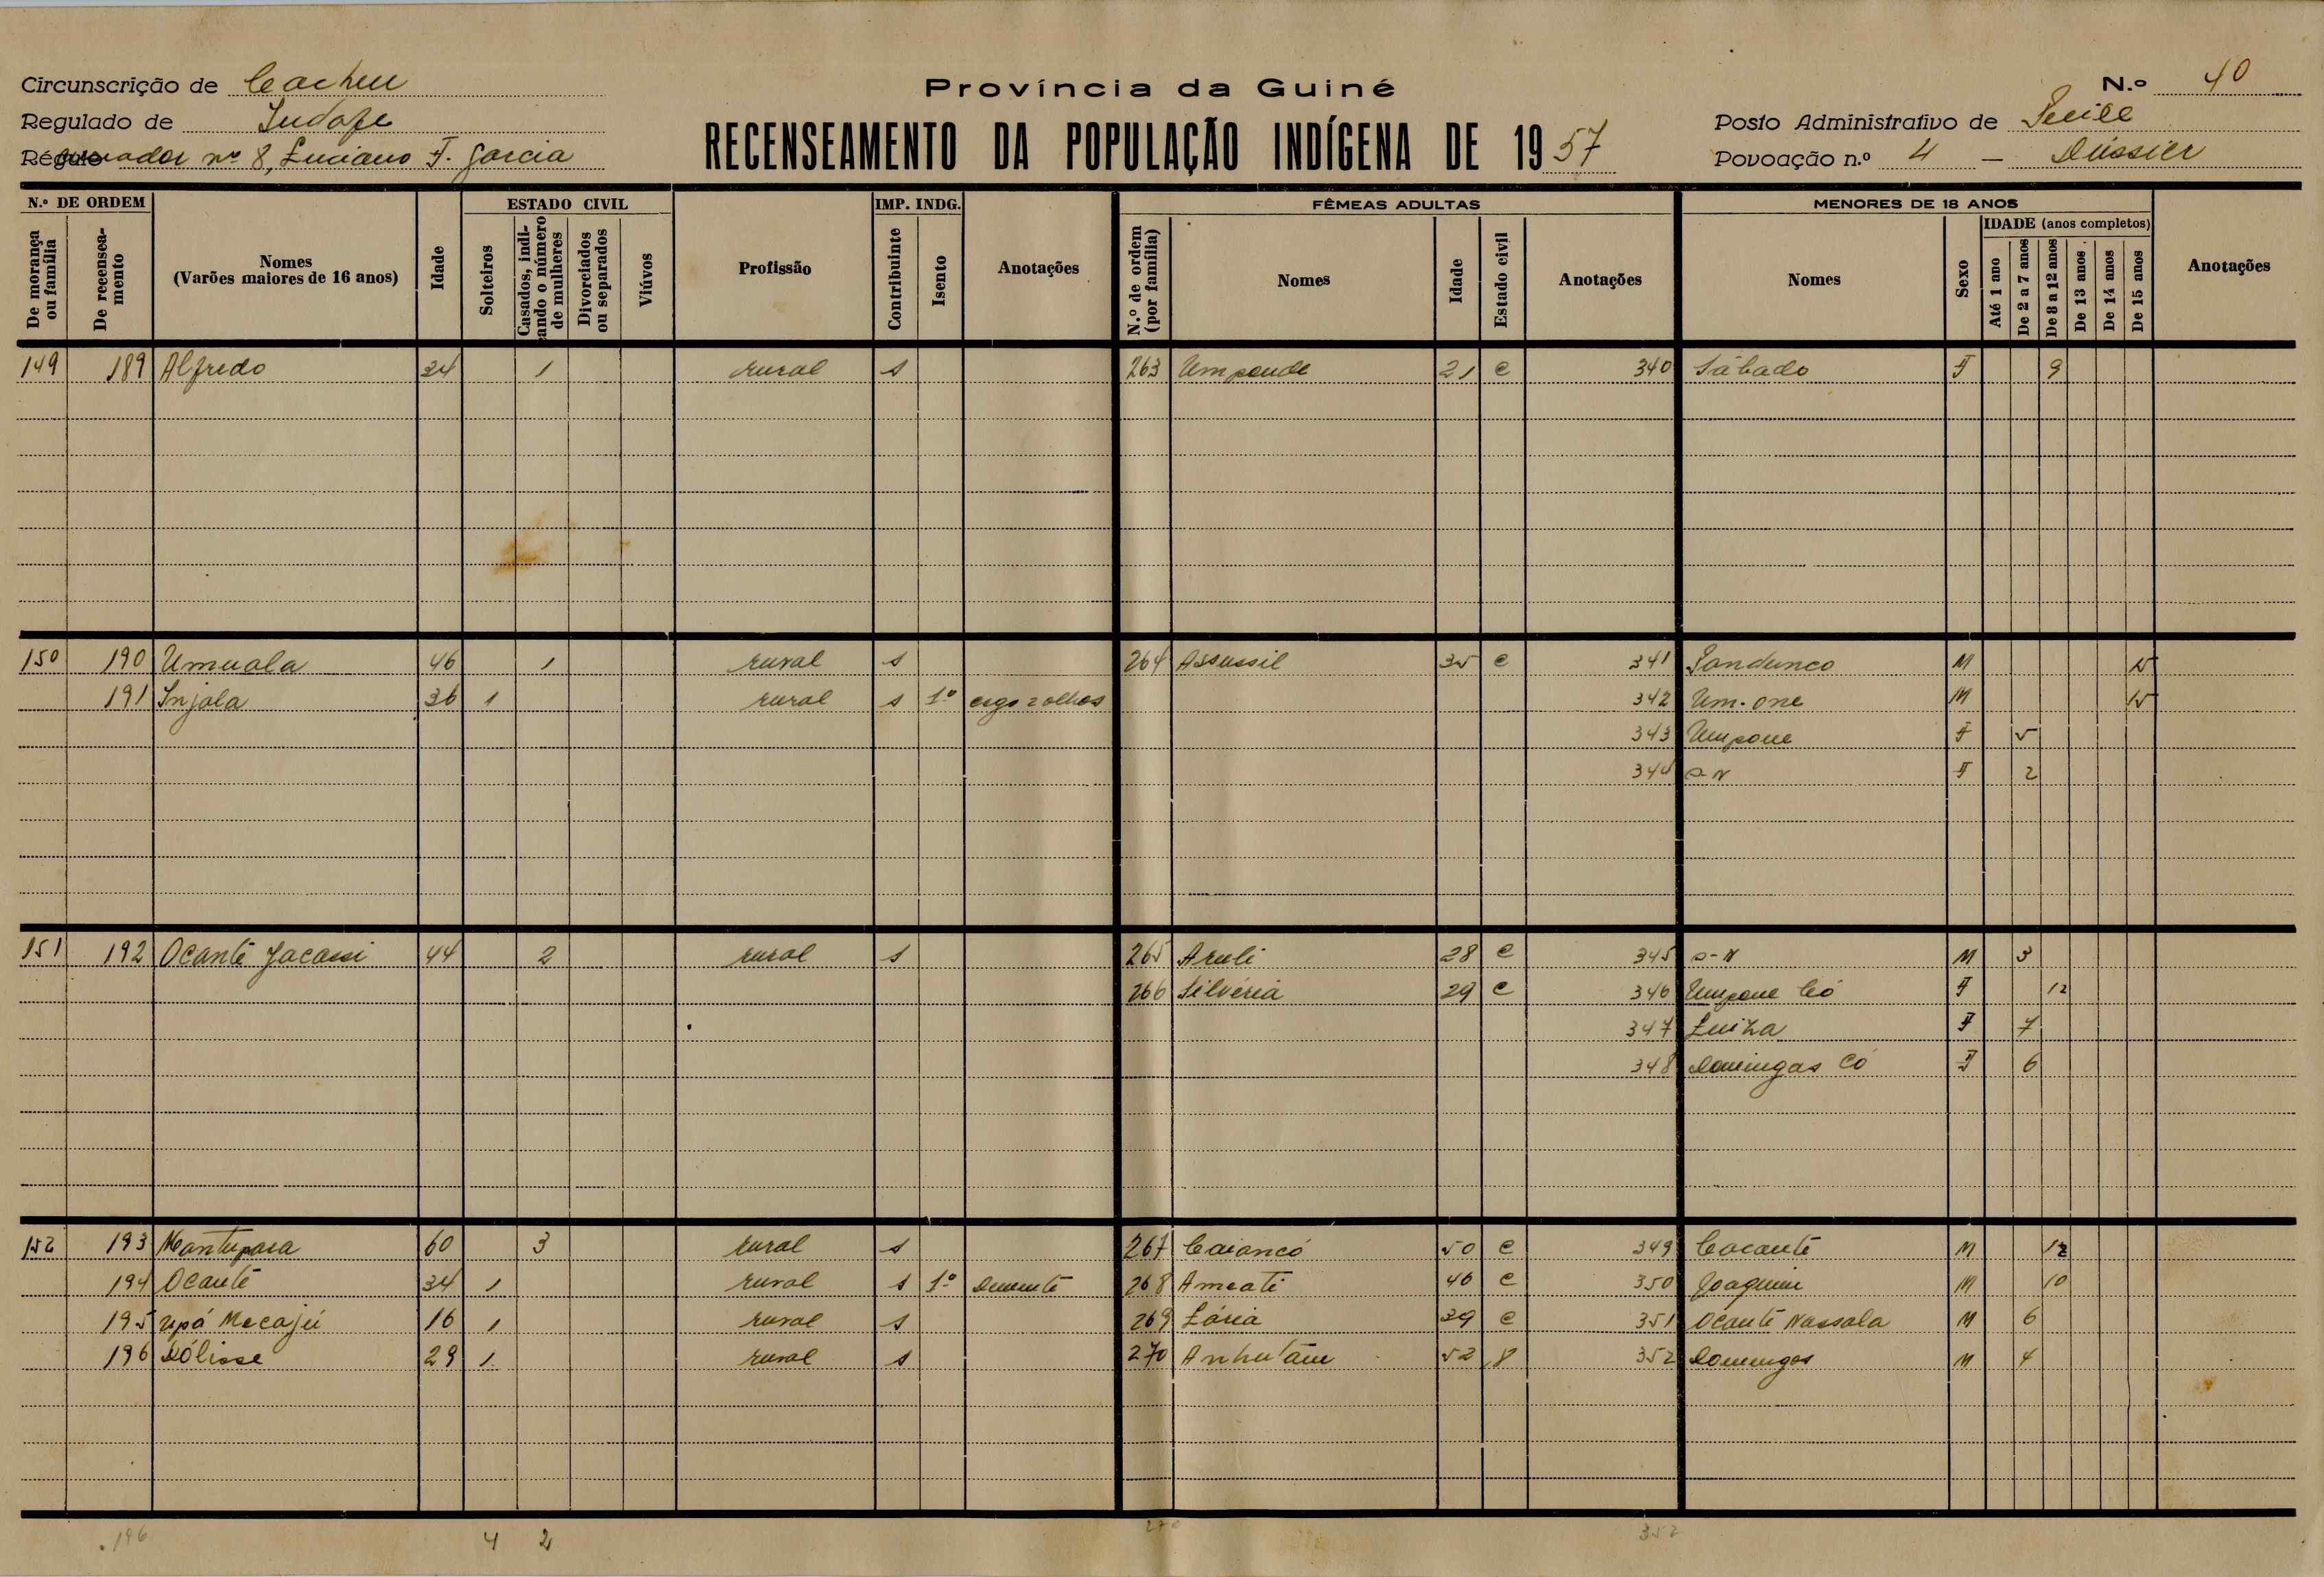 Circunscrição de Cacheu
Província da Guiné
N.º 40
Regulado de
Posto Administrativo de
Régulo nº 8, Luciano F. Garcia
RECENSEAMENTO DA POPULAÇÃO INDÍGENA DE 1957
Povoação n.º 4 —
N.º DE ORDEM
De morança ou família
De recensea-mento
Nomes
(Varões maiores de 16 anos)
Idade
ESTADO CIVIL
Solteiros
Casados, indi-cando o número de mulheres
Divorciados ou separados
Viúvos
Profissão
IMP. INDG.
Contribuinte
Isento
Anotações
FÊMEAS ADULTAS
N.º de ordem (por família)
Nomes
Idade
Estado civil
Anotações
MENORES DE 18 ANOS
Nomes
Sexo
IDADE (anos completos)
Até 1 ano
De 2 a 7 anos
De 8 a 12 anos
De 13 anos
De 14 anos
De 15 anos
Anotações
149 189 Alfredo 34 1 rural s 263 Umpande 21 c 340 Sábado F 9
150 190 Umuala 46 1 rural s 264 Assussil 35 c 341 M 15
191 Injola 36 1 rural s 1º cego 2 olhos 342 Um-one M 15
343 Umpone F 5
344 s-N F 2
151 192 Ocanté Jacassi 44 2 rural s 265 Aruli 28 c 345 s-N M 3
266 Silvéria 29 c 346 Umpone Có F 12
347 Luiza F 7
348 Domingas Có F 6
152 193 60 3 rural s 267 Caiancó 50 c 349 Cacanté M 12
194 Ocanté 34 1 rural s 1º Demente 268 Ameati 46 c 350 Joaquim M 10
195 Upá 16 1 rural s 269 39 c 351 Ocanté Nassala M 6
196 Dólisse 29 1 rural s 270 52 352 Domingos M 4
196 4 2 270 352